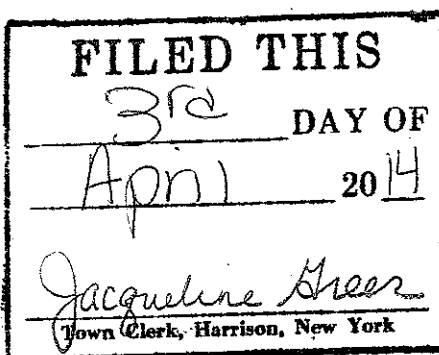 FILED THIS
3rd DAY OF
April 2014
Jacqueline Greer
Town Clerk, Harrison, New York